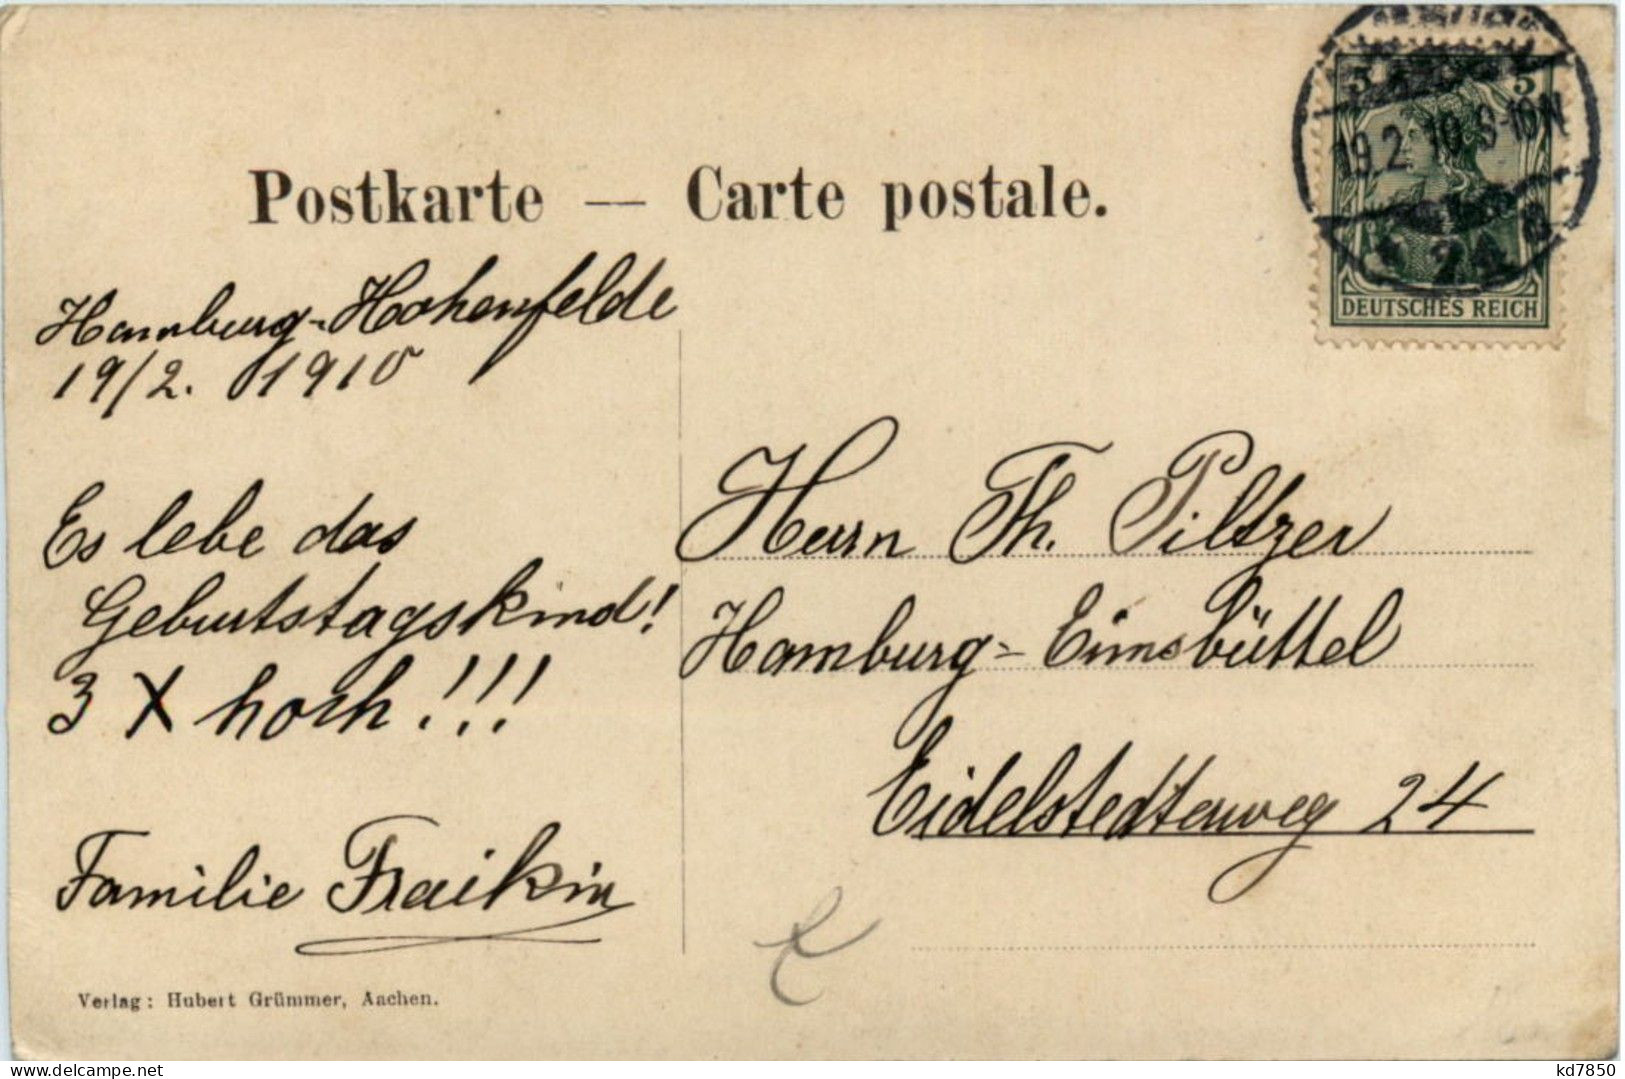 Postkarte — Carte postale.
5 5
19.2.10.9-10N
DEUTSCHES REICH
Hamburg-Hohenfelde
19/2. 1910
Es lebe das
Geburtstagskind!
3 X hoch!!!
Familie Fraikin
Herrn Th. Piltzer
Hamburg-Eimsbüttel
Eidelstedterweg 24
Verlag: Hubert Grümmer, Aachen.
kd7850